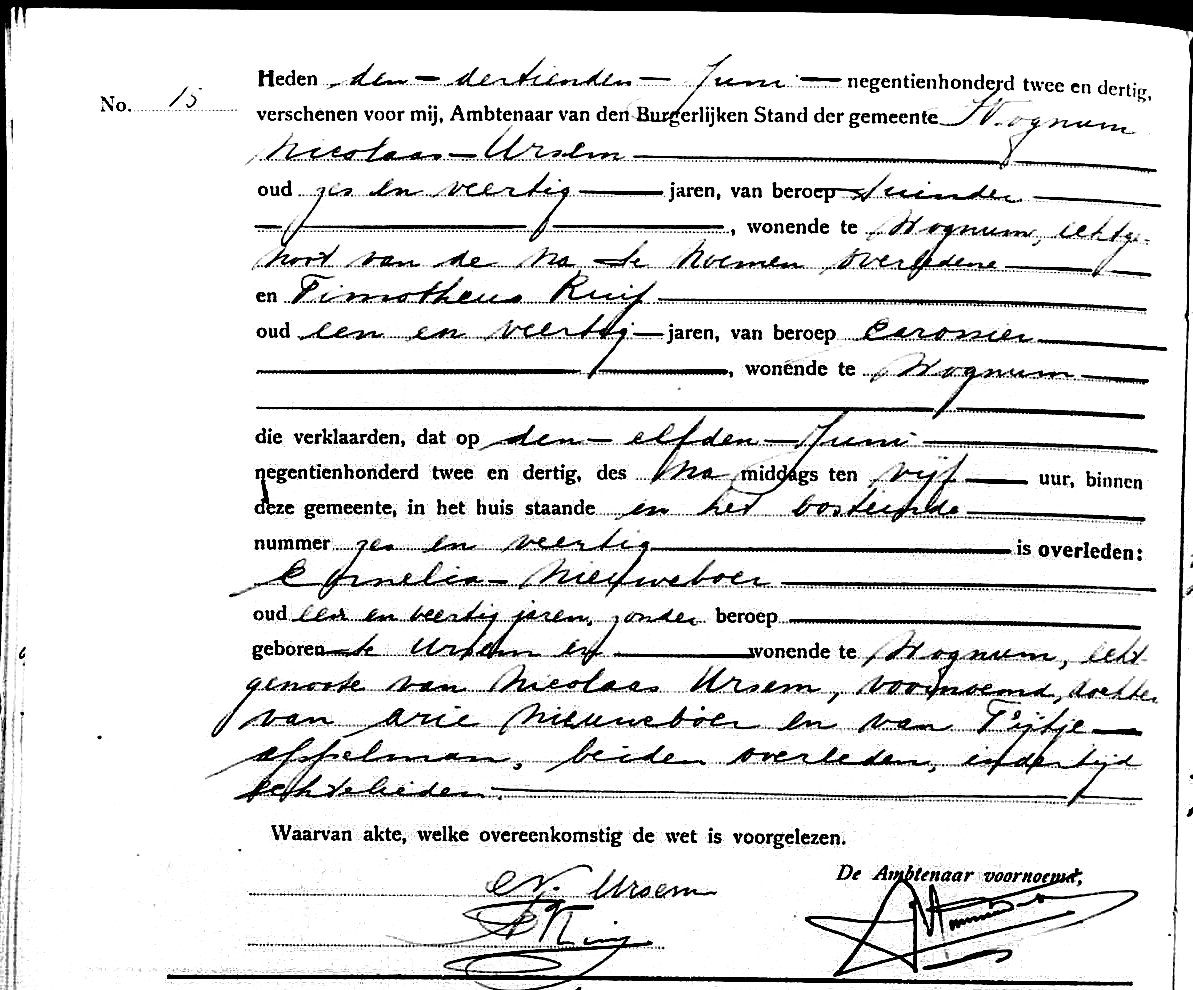 No. 15
Heden den dertienden Juni negentienhonderd twee en dertig,
verschenen voor mij, Ambtenaar van den Burgerlijken Stand der gemeente Wognum
Nicolaas Ursem
oud zes en veertig jaren, van beroep tuinder
, wonende te Wognum, echtge-
noot van de na te noemen overledene
en Timotheus
oud een en veertig jaren, van beroep
, wonende te Wognum
die verklaarden, dat op den elfden Juni
negentienhonderd twee en dertig, des na middags ten vijf uur, binnen
deze gemeente, in het huis staande en het oosteinde
nummer zes en veertig is overleden:
Cornelia Nieuweboer
oud een en veertig jaren, zonder beroep
geboren te Ursem en wonende te Wognum, echt-
genoote van Nicolaas Ursem, voornoemd, dochter
van Arie Nieuweboer en van Trijtje
Appelman, beiden overleden, indertijd
echtelieden.
Waarvan akte, welke overeenkomstig de wet is voorgelezen.
De Ambtenaar voornoemd,
N. Ursem